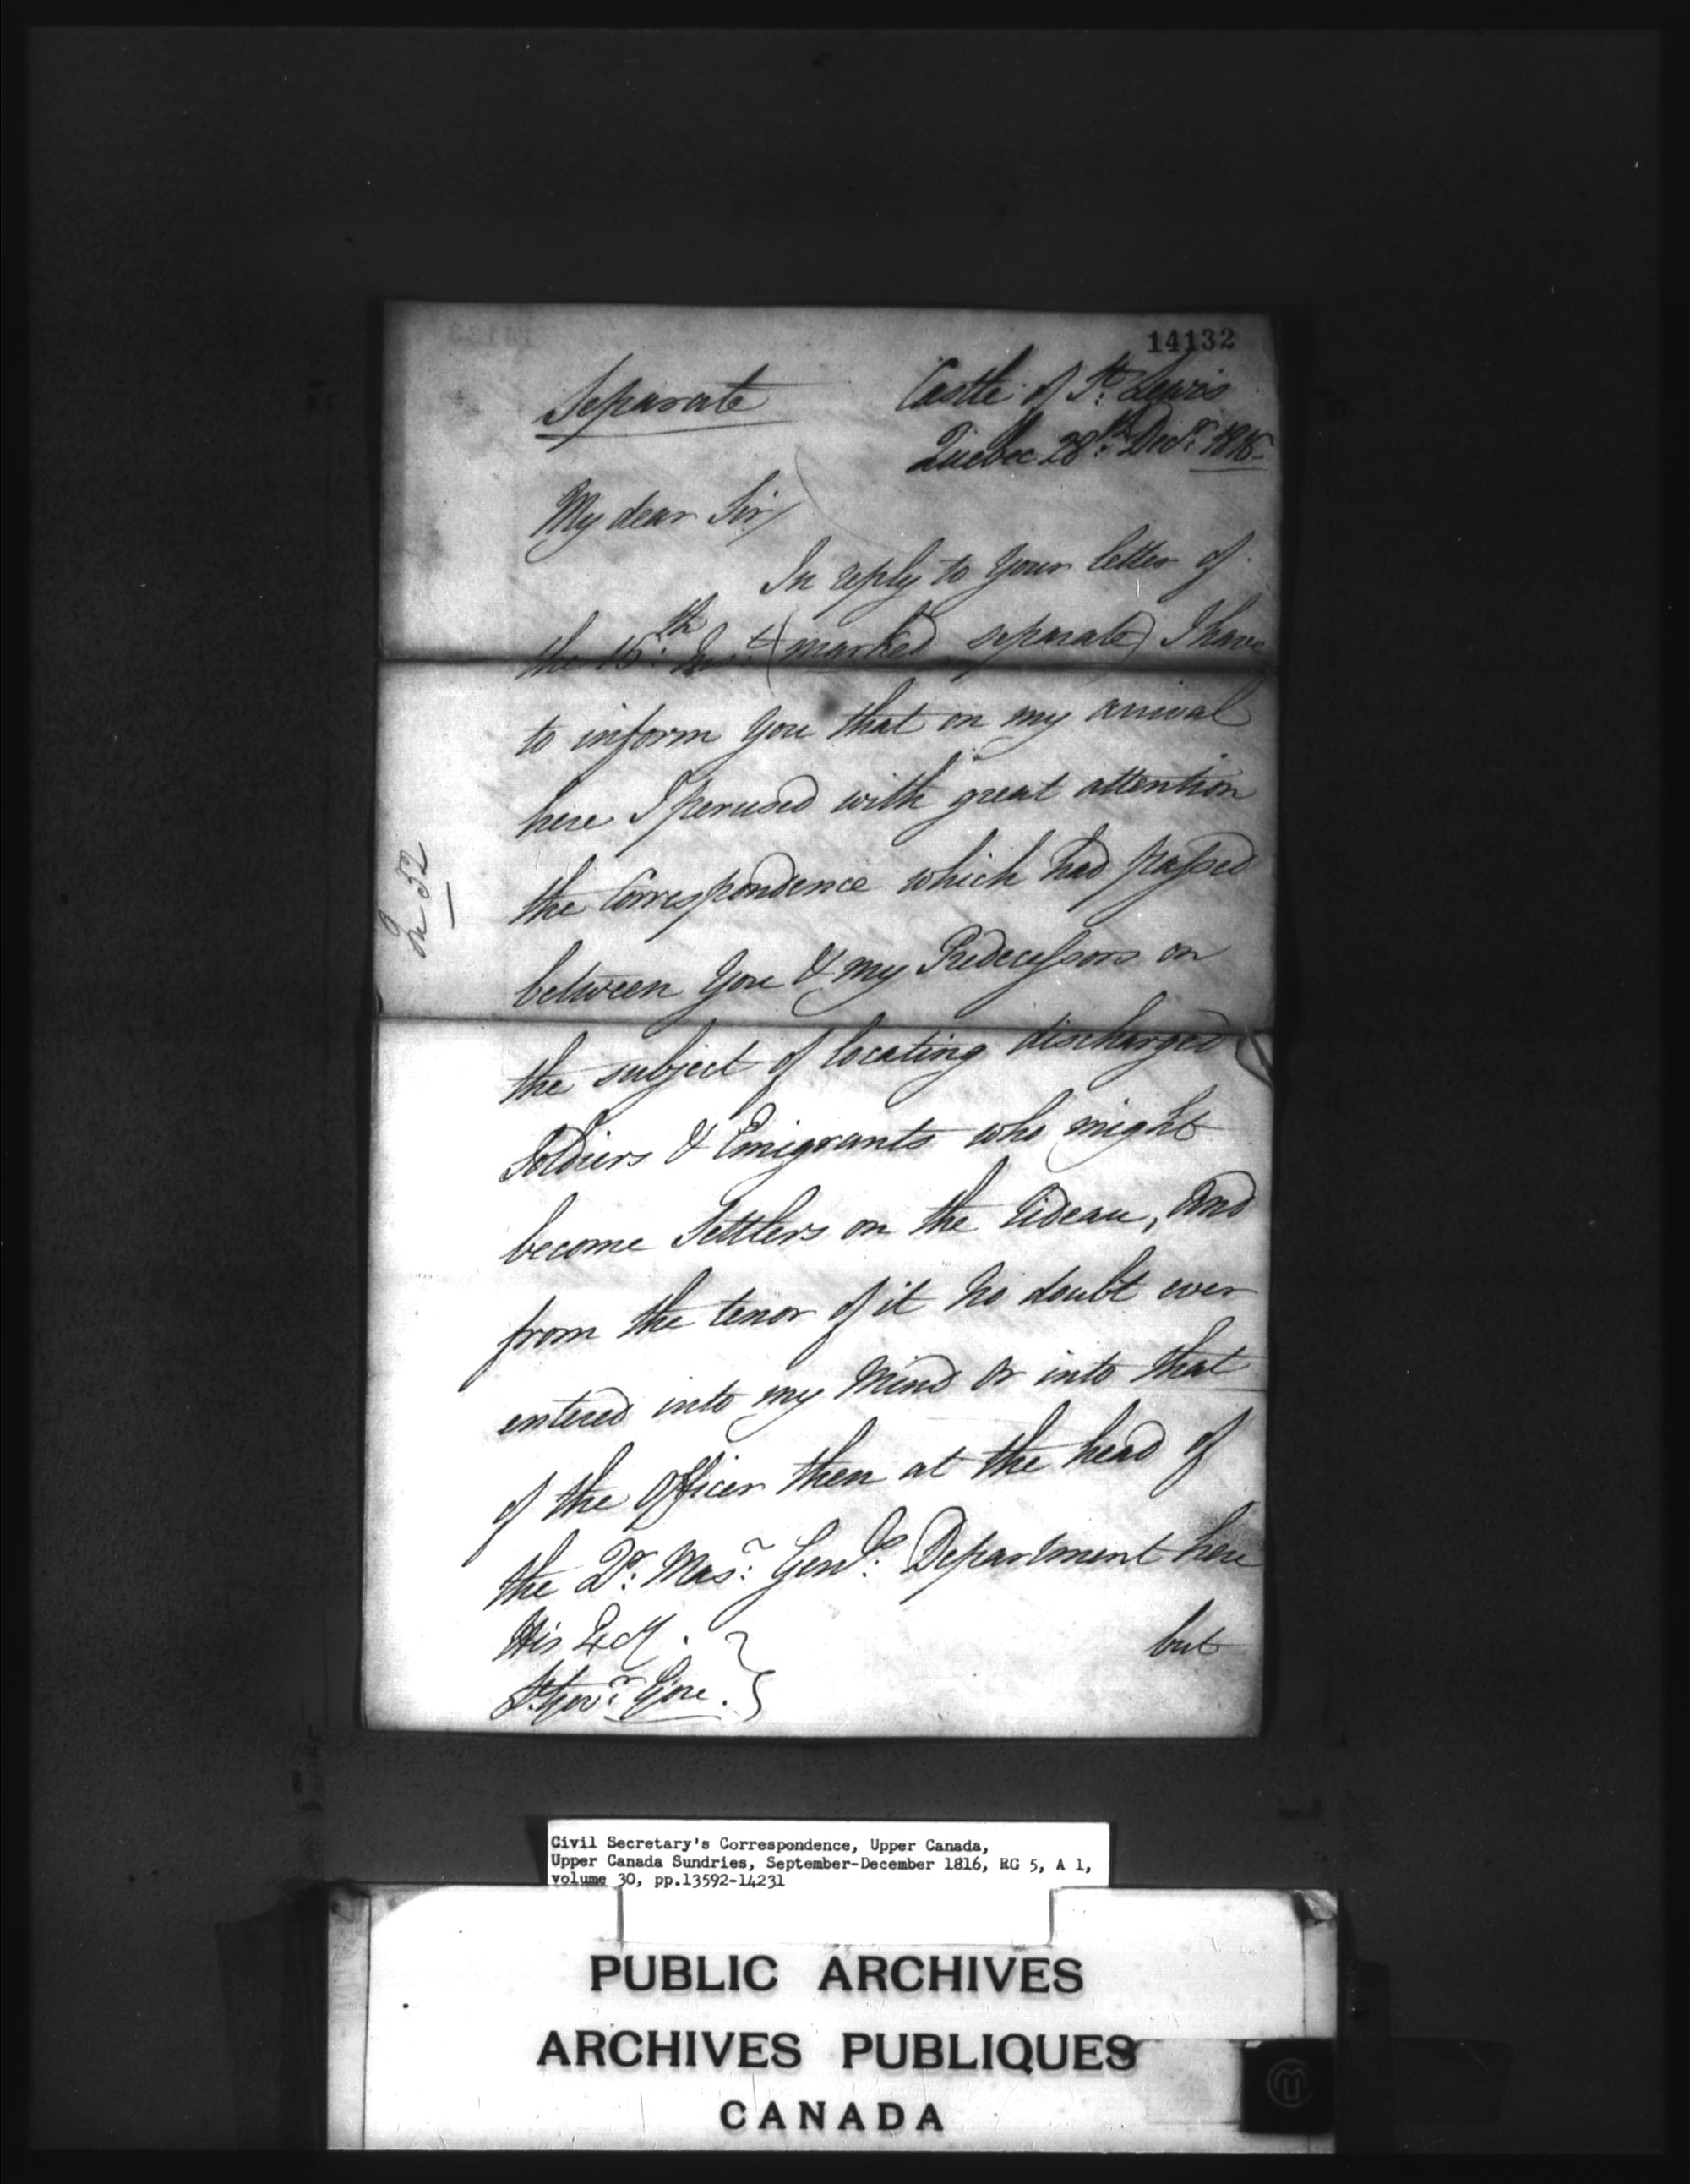 14132
Separate
Castle of St. Lewis
Quebec 28th. Decr. 1816.
My dear Sir/
In reply to your letter of
the 15th. Inst. (marked separate) I have
to inform you that on my arrival
here I perused with great attention
the Correspondence which had passed
between you & my Predecessors on
the subject of locating discharged
Soldiers & Emigrants who might
become Settlers on the Rideau, and
from the tenor of it no doubt ever
entered into my Mind or into that
of the Officer then at the head of
the Qr. Masr. Genl. Department here
but
His Exy.
Lt. Govr. Gore.
Civil Secretary's Correspondence, Upper Canada,
Upper Canada Sundries, September-December 1816, RG 5, A 1,
volume 30, pp.13592-14231
PUBLIC ARCHIVES
ARCHIVES PUBLIQUES
CANADA